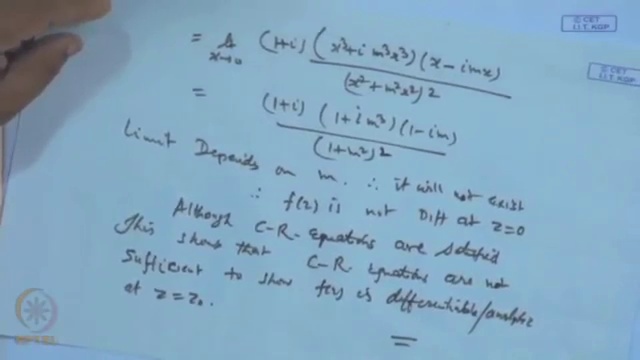 © CET
I.I.T. KGP
© CET
I.I.T. KGP
= lt x→0 (1+i) (x³+i m³x³)(x-imx) / (x²+m²x²)²
= (1+i) (1+im³)(1-im) / (1+m²)²
Limit Depends on m. ∴ it will not exist
∴ f(z) is not Diff at z=0
Although C-R-Equations are satisfied
This shows that C-R- Equations are not
sufficient to show f(z) is differentiable/analytic
at z=z₀.
NPTEL